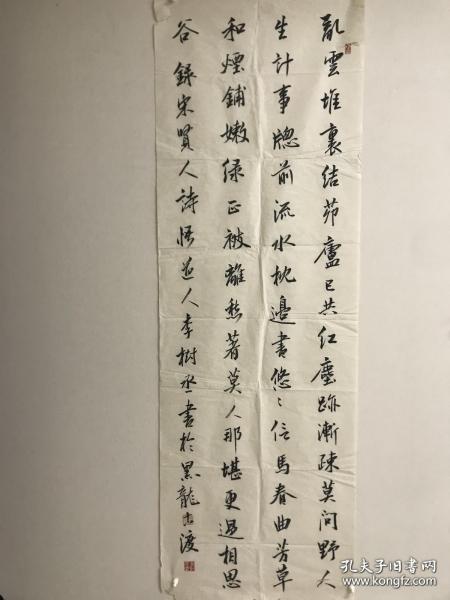 亂雲堆裏結茆廬已共红塵跡漸疎莫问野人
生計事牕前流水枕邊書悠〻信馬春曲芳草
和煙鋪嫩绿正被離愁著莫人那堪更過相思
谷錄宋賢人詩悟道人李樹丞書於黑龍古渡
孔夫子旧书网